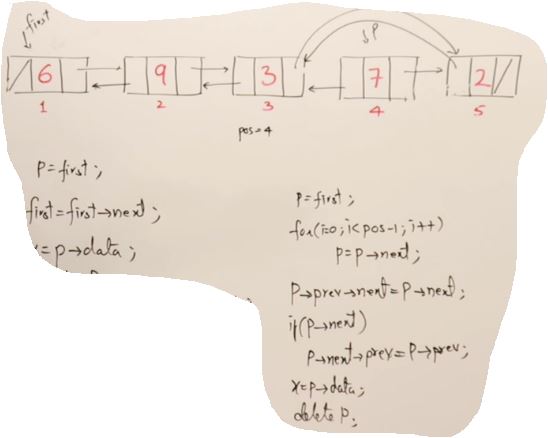 first
P
6 9 3 7 2
1 2 3 4 5
pos=4
P=first;
first=first→next;
=p→data;
P=first;
for(i=0;i<pos-1;i++)
P=P→next;
P→prev→next=P→next;
if(P→next)
P→next→prev=P→prev;
x=P→data;
delete P;